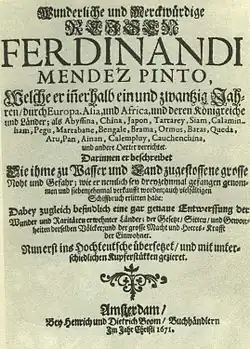 Wunderliche und Merckwürdige
REISEN
FERDINANDI
MENDEZ PINTO,
Welche er iñerhalb ein und zwantzig Jah-
ren / durch Europa, Asia, und Africa, und deren Königreiche
und Länder; als Abyssina, China, Japon, Tartarey, Siam, Calamin-
ham, Pegu, Martabane, Bengale, Brama, Ormus, Batas, Queda,
Aru, Pan, Ainan, Calemplny, Cauchenchina,
und andere Oerter verrichtet.
Darinnen er beschreibet
Die ihme zu Wasser und Land zugestossene grosse
Noht und Gefahr; wie er nemlich sey dreyzehnmal gefangen genom-
men und siebenzehnmal verkaufft worden; auch vielfältigen
Schiffbruch erlitten habe.
Dabey zugleich befindlich eine gar genaue Entwerffung der
Wunder und Raritäten erwehnter Länder; der Gesetze / Sitten / und Gewon-
heiten derselben Völcker; und der grosse Macht und Heeres-Krafft
der Einwohner.
Nun erst ins Hochteutsche übersetzet / und mit unter-
schiedlichen Kupfferstükken gezieret.
Amsterdam /
Bey Henrich und Dietrich Boom / Buchhändlern
Im Jahr Christi 1671.